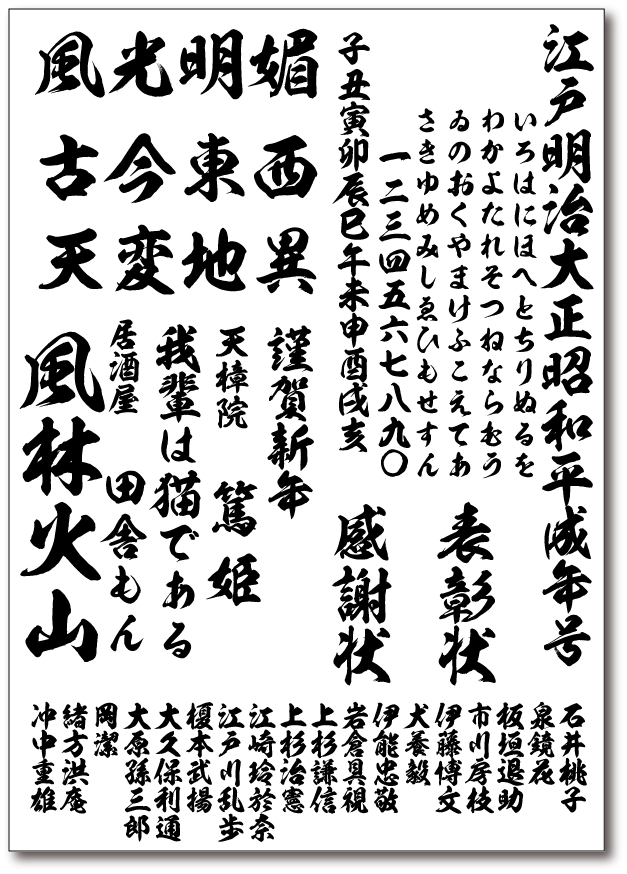 江戸明治大正昭和平成年号
いろはにほへとちりぬるを
わかよたれそつねならむう
ゐのおくやまけふこえてあ
さきゆめみしゑひもせすん
一二三四五六七八九〇
子丑寅卯辰巳午未申酉戌亥
表彰状
感謝状
風光明媚
古今東西
天変地異
謹賀新年
天樟院 篤姫
我輩は猫である
居酒屋 田舎もん
風林火山
石井桃子
泉鏡花
板垣退助
市川房枝
伊藤博文
犬養毅
伊能忠敬
岩倉具視
上杉謙信
上杉治憲
江崎玲於奈
江戸川乱歩
榎本武揚
大久保利通
大原孫三郎
岡潔
緒方洪庵
沖中重雄